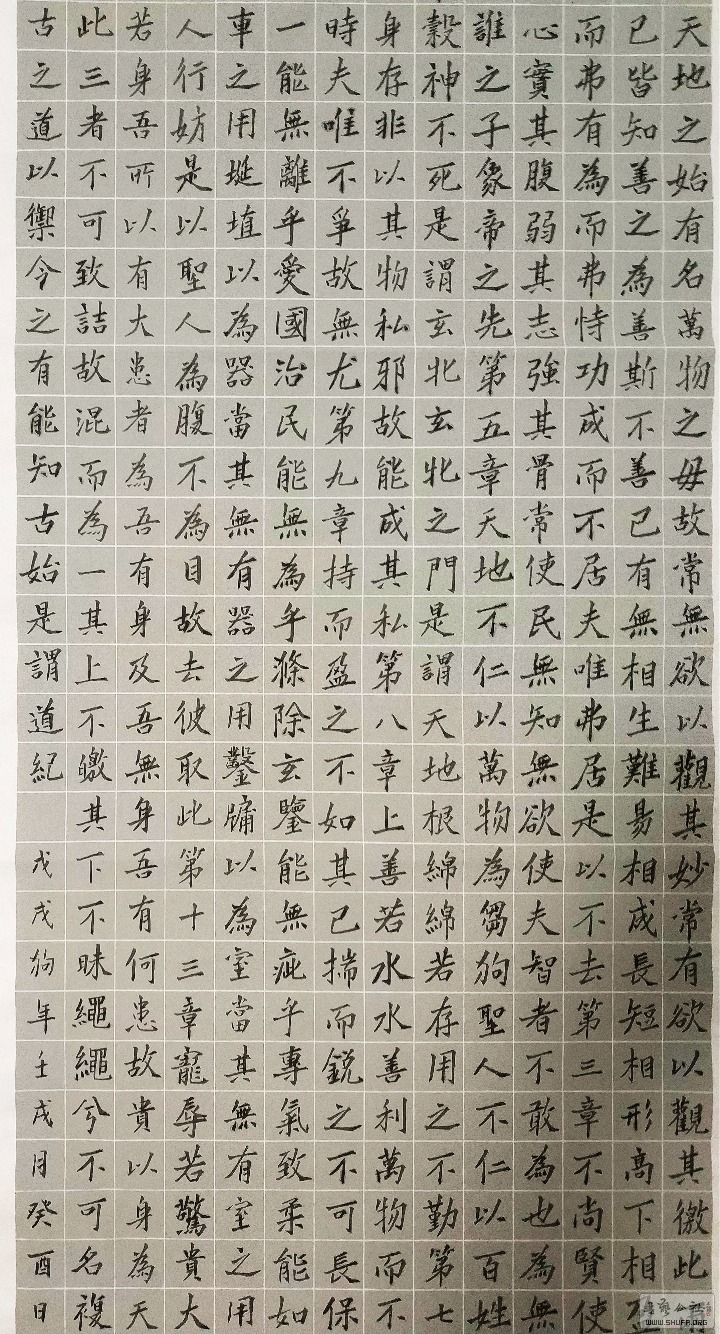 天地之始有名萬物之毋故常無欲以觀其妙常有欲以觀其徼此
已皆知善之為善斯不善已有無相生難易相成長短相形高下相
而弗有為而弗恃功成而不居夫唯弗居是以不去第三章不尚賢使
心實其腹弱其志強其骨常使民無知無欲使夫智者不敢為也為無
誰之子象帝之先第五章天地不仁以萬物為芻狗聖人不仁以百姓
穀神不死是謂玄牝玄牝之門是謂天地根綿綿若存用之不勤第七
身存非以其物私邪故能成其私第八章上善若水水善利萬物而不
時夫唯不爭故無尤第九章持而盈之不如其已揣而銳之不可長保
一能無離乎愛國治民能無為乎滌除玄鑒能無疵乎專氣致柔能如
車之用埏埴以為器當其無有器之用鑿牖以為室當其無有室之用
人行妨是以聖人為腹不為目故去彼取此第十三章寵辱若驚貴大
若身吾所以有大患者為吾有身及吾無身吾有何患故貴以身為天
此三者不可致詰故混而為一其上不皦其下不昧繩繩兮不可名複
古之道以禦今之有能知古始是謂道紀 戊戌狗年壬戌月癸酉日
WWW.SHUFA.ORG